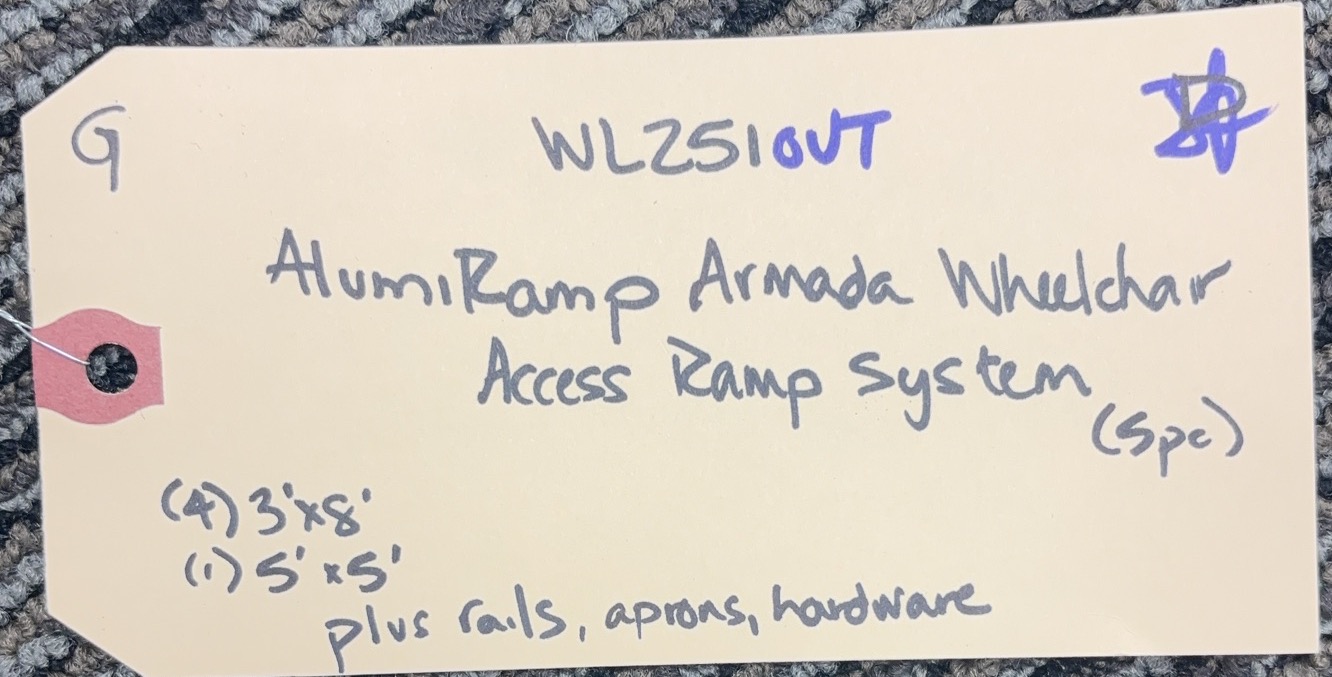 G
WL251OUT
AlumiRamp Armada Wheelchair
Access Ramp System
(5pc)
(4) 3'x8'
(1) 5'x5'
plus rails, aprons, hardware